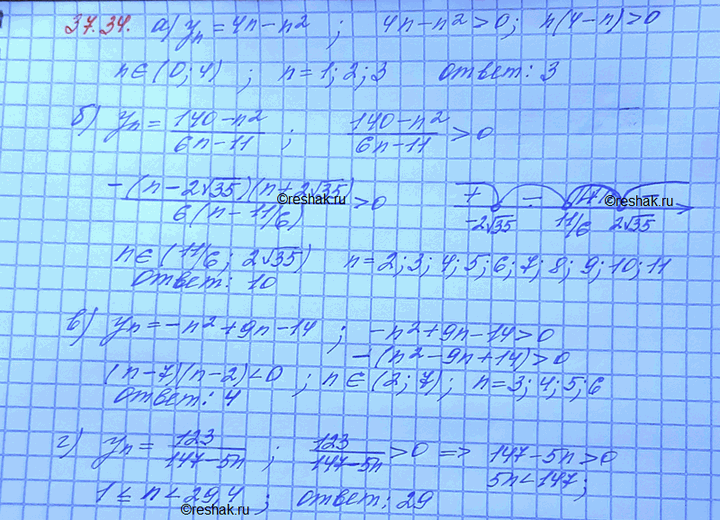 37.34. а) yₙ = 4n – n² ; 4n – n² > 0; n(4–n) > 0
n ∈ (0; 4) ; n = 1; 2; 3 ответ: 3
б) yₙ = (140 – n²)/(6n – 11) ; (140 – n²)/(6n – 11) > 0
–(n – 2√35)(n + 2√35)/(6(n – 11/6)) > 0 + – + –2√35 11/6 2√35
©reshak.ru ©reshak.ru
n ∈ (11/6; 2√35) n = 2; 3; 4; 5; 6; 7; 8; 9; 10; 11
ответ: 10
в) yₙ = –n² + 9n – 14 ; –n² + 9n – 14 > 0
–(n² – 9n + 14) > 0
(n – 7)(n – 2) < 0 ; n ∈ (2; 7) ; n = 3; 4; 5; 6
ответ: 4
г) yₙ = 123/(147 – 5n) ; 123/(147 – 5n) > 0 => 147 – 5n > 0
5n < 147;
1 ≤ n < 29,4 ; ответ: 29
©reshak.ru